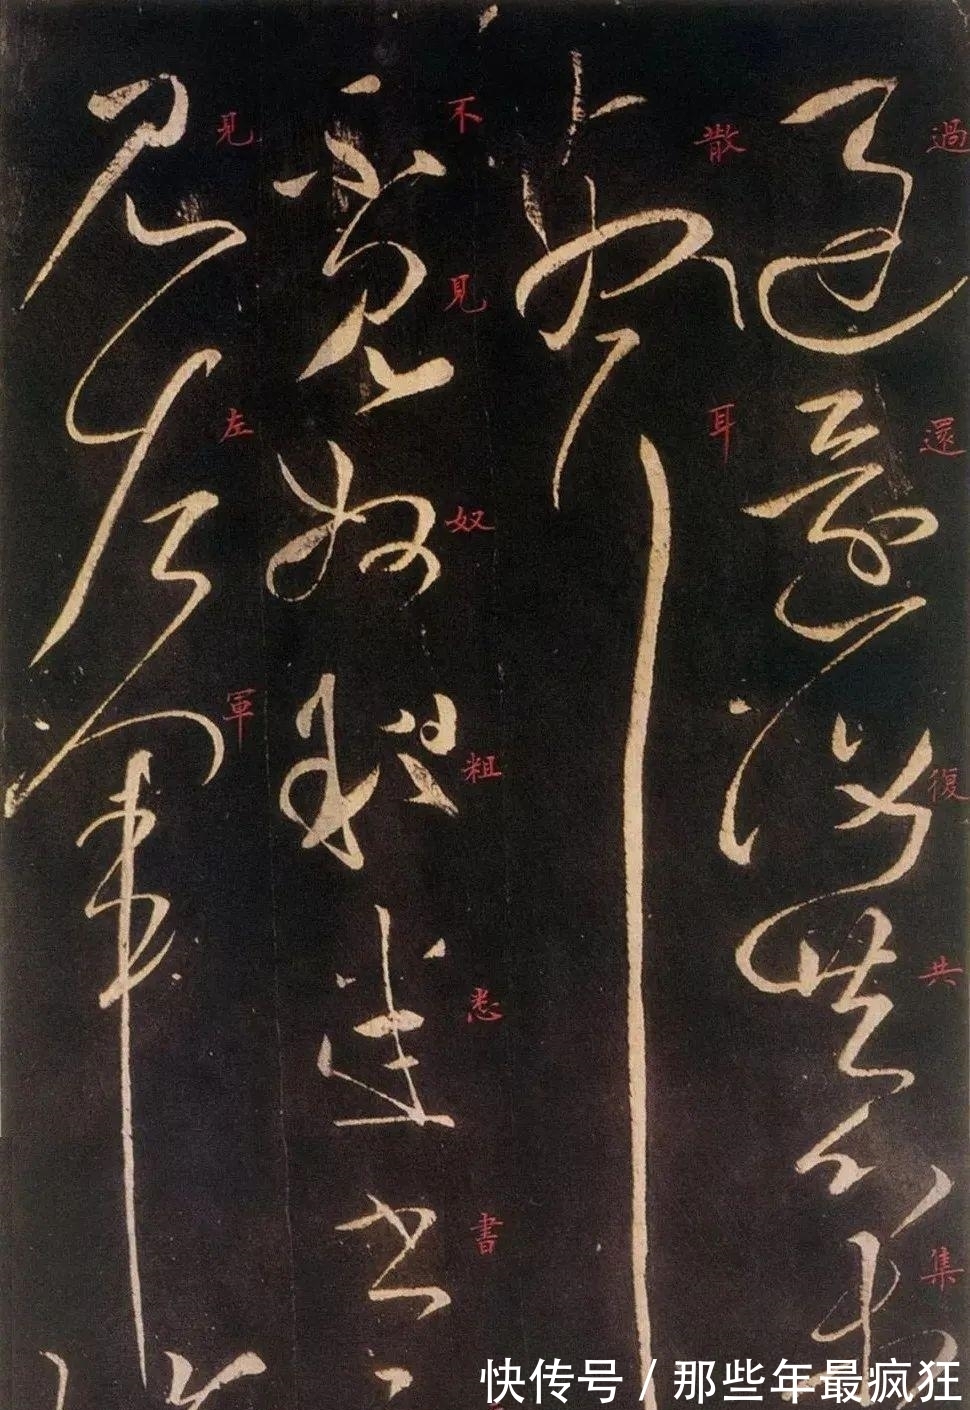 過還復共集
散耳
不見奴粗悉書
見左軍
快传号/那些年最疯狂